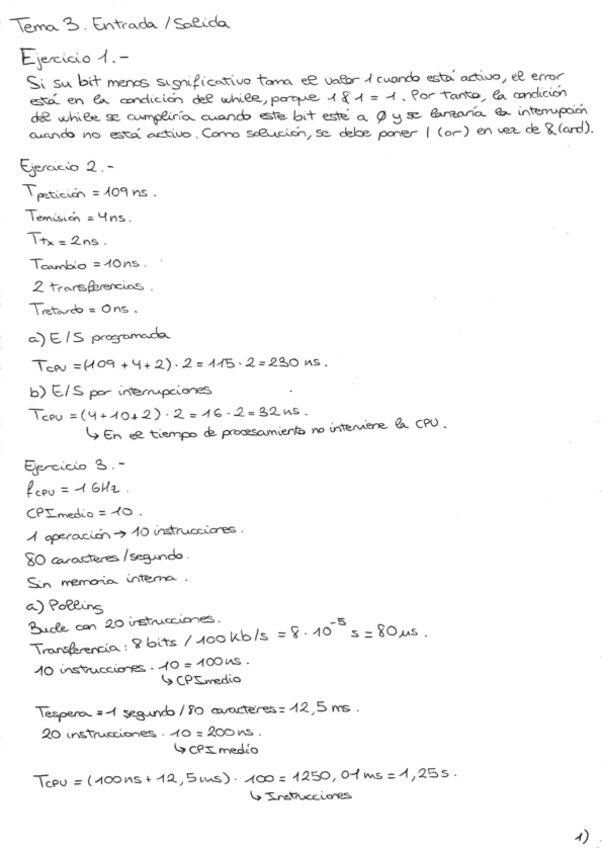 Tema 3. Entrada / Salida
Ejercicio 1.-
Si su bit menos significativo toma el valor 1 cuando está activo, el error
está en la condición del while, porque 1 & 1 = 1. Por tanto, la condición
del while se cumpliría cuando este bit esté a 0 y se lanzaría la interrupción
cuando no está activo. Como solución, se debe poner | (or) en vez de & (and).
Ejercicio 2.-
Tpetición = 109 ns.
Temisión = 4ns.
Ttx = 2ns.
Tcambio = 10ns.
2 transferencias.
Tretardo = 0ns.
a) E/S programada
TCPU = (109 + 4 + 2) · 2 = 115 · 2 = 230 ns.
b) E/S por interrupciones
TCPU = (4 + 10 + 2) · 2 = 16 · 2 = 32 ns.
↳ En el tiempo de procesamiento no interviene la CPU.
Ejercicio 3.-
fCPU = 1 GHz.
CPImedio = 10.
1 operación → 10 instrucciones.
80 caracteres/segundo.
Sin memoria interna.
a) Polling
Bucle con 20 instrucciones.
Transferencia: 8 bits / 100 kb/s = 8 · 10⁻⁵ s = 80 µs.
10 instrucciones · 10 = 100 ns.
↳ CPImedio
Tespera = 1 segundo / 80 caracteres = 12,5 ms.
20 instrucciones · 10 = 200 ns.
↳ CPI medio
TCPU = (100ns + 12,5ms) · 100 = 1250,01 ms = 1,25 s.
↳ Instrucciones
1)